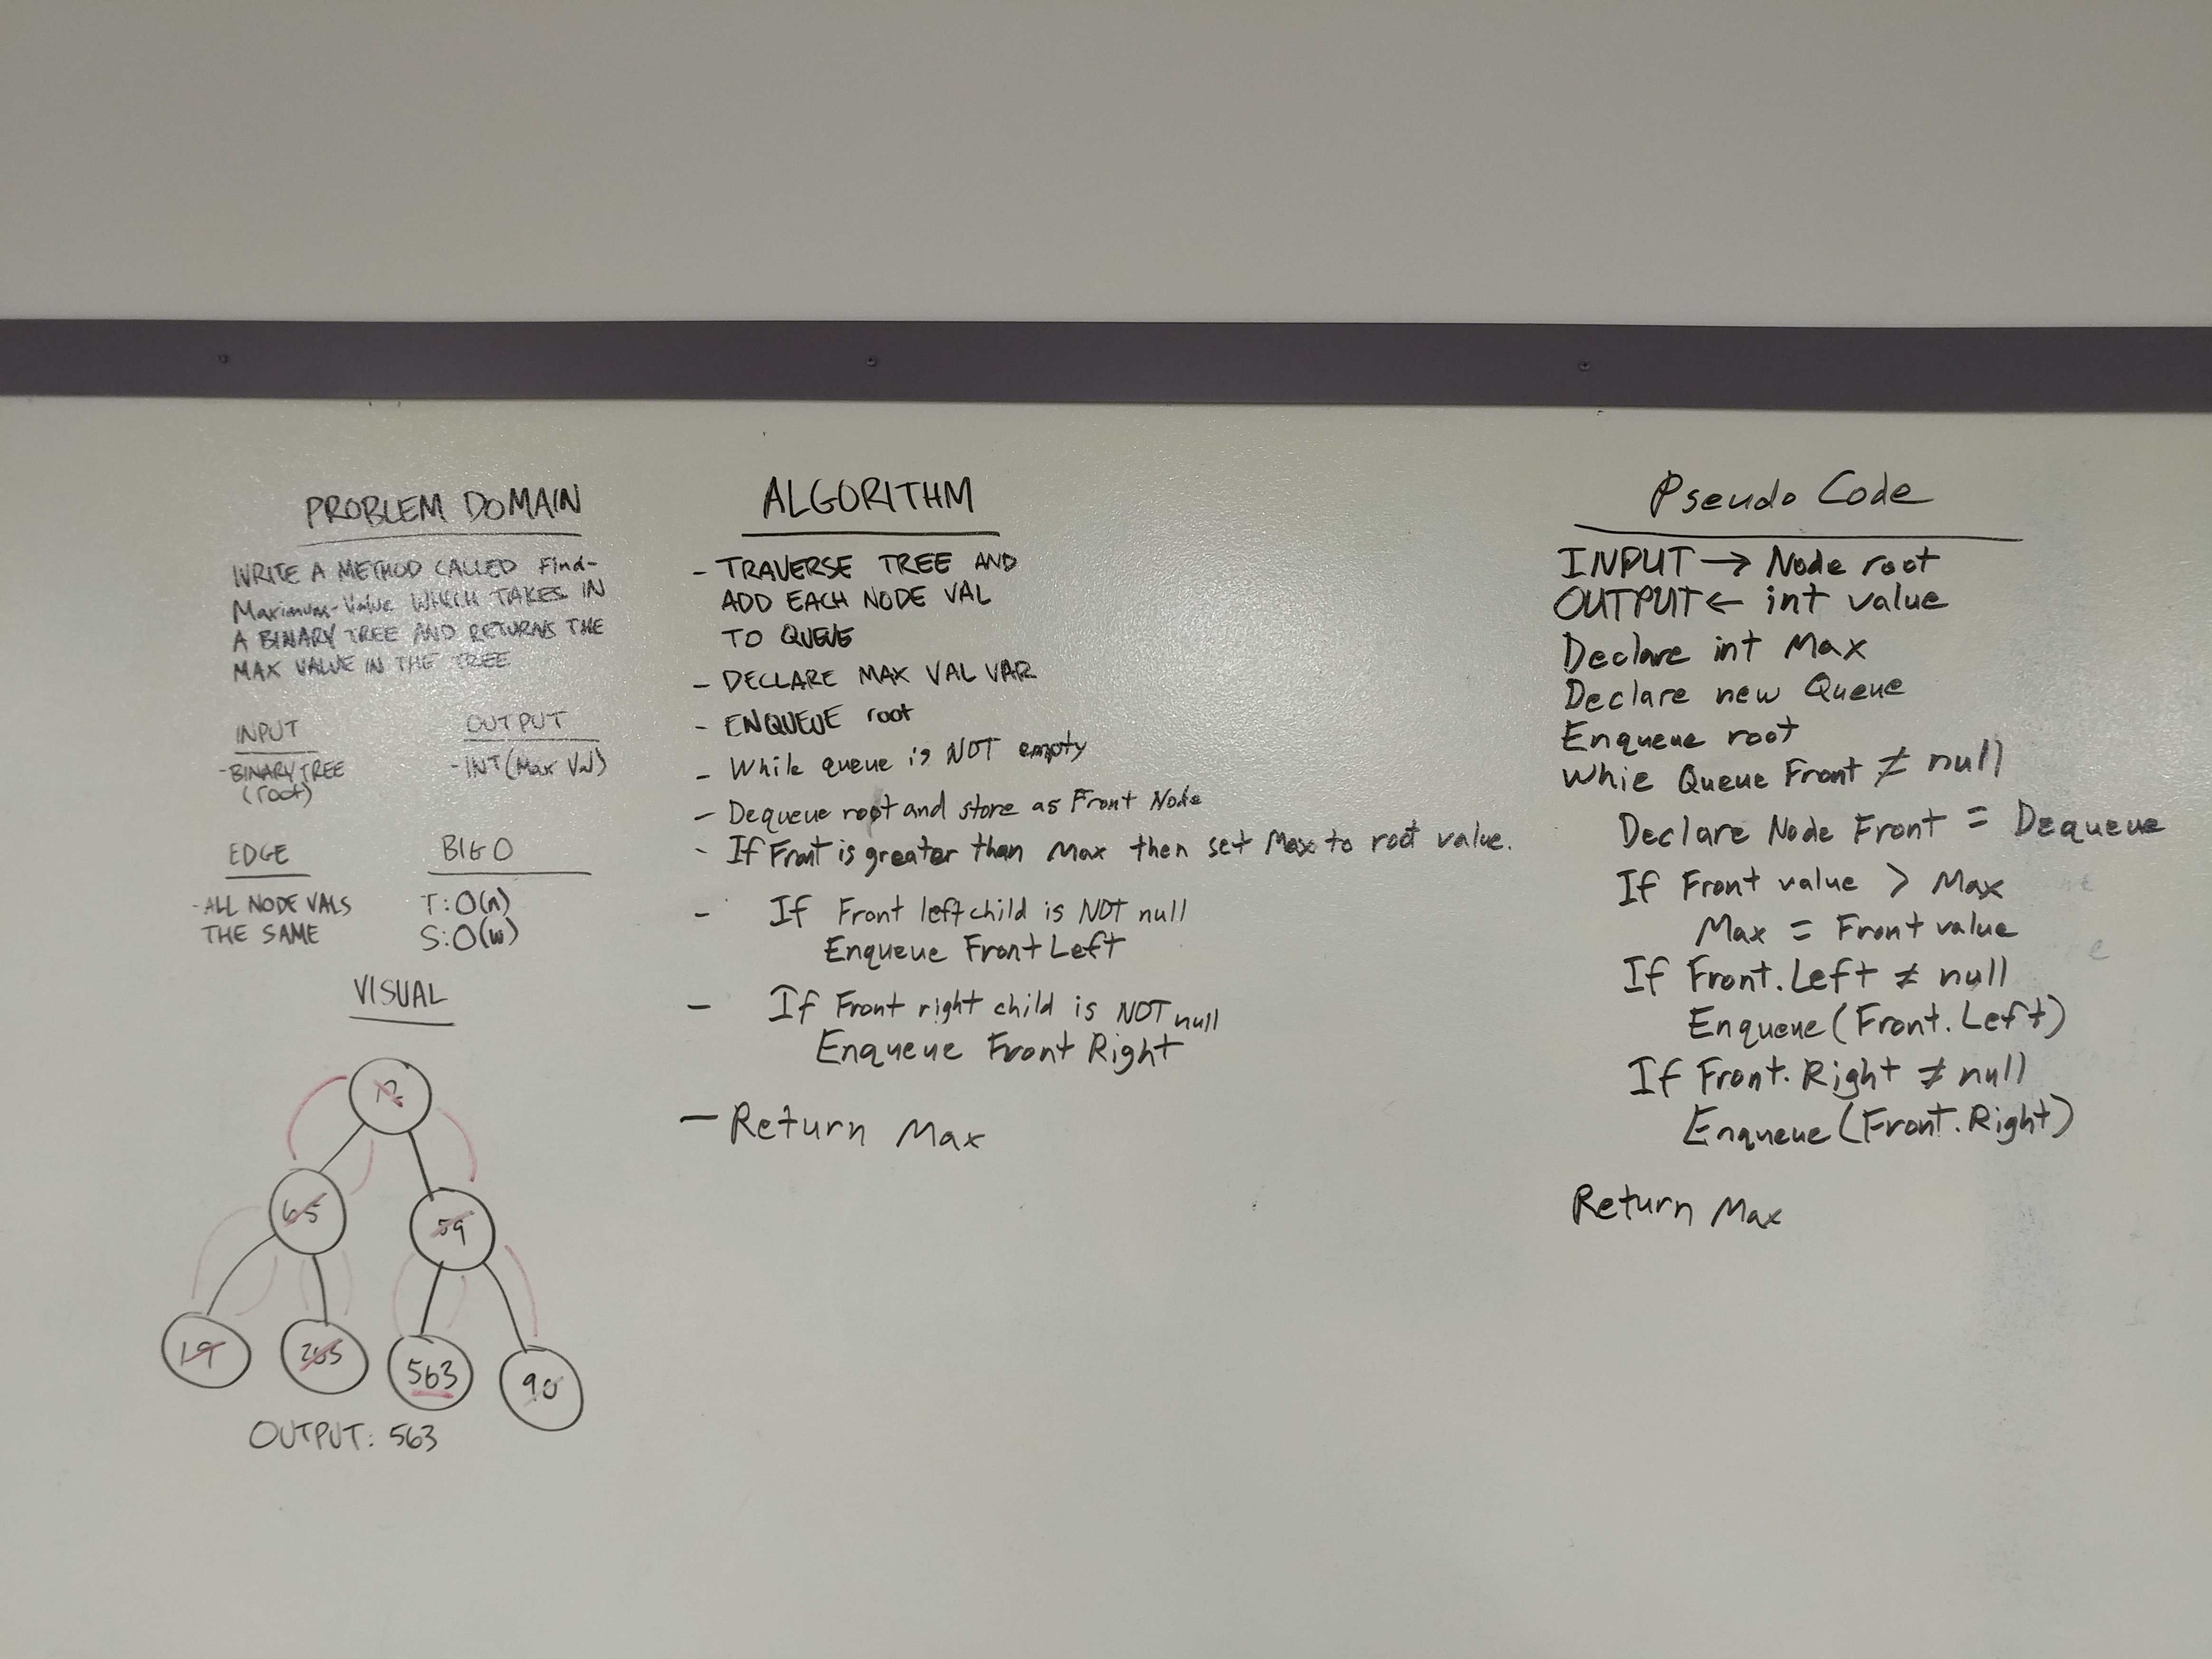 PROBLEM DOMAIN
WRITE A METHOD CALLED Find-
Maximum-Value WHICH TAKES IN
A BINARY TREE AND RETURNS THE
MAX VALUE IN THE TREE
INPUT
-BINARY TREE
(root)
OUTPUT
-INT(Max Val)
EDGE
-ALL NODE VALS
THE SAME
BIG O
T:O(n)
S:O(w)
VISUAL
65
59
19
563
90
OUTPUT: 563
ALGORITHM
- TRAVERSE TREE AND
ADD EACH NODE VAL
TO QUEUE
- DECLARE MAX VAL VAR
- ENQUEUE root
- While queue is NOT empty
- Dequeue root and store as Front Node
- If Front is greater than Max then set Max to root value.
- If Front left child is NOT null
Enqueue Front Left
- If Front right child is NOT null
Enqueue Front Right
- Return Max
Pseudo Code
INPUT → Node root
OUTPUT ← int value
Declare int Max
Declare new Queue
Enqueue root
Whie Queue Front ≠ null
Declare Node Front = Dequeue
If Front value > Max
Max = Front value
If Front.Left ≠ null
Enqueue(Front.Left)
If Front.Right ≠ null
Enqueue(Front.Right)
Return Max